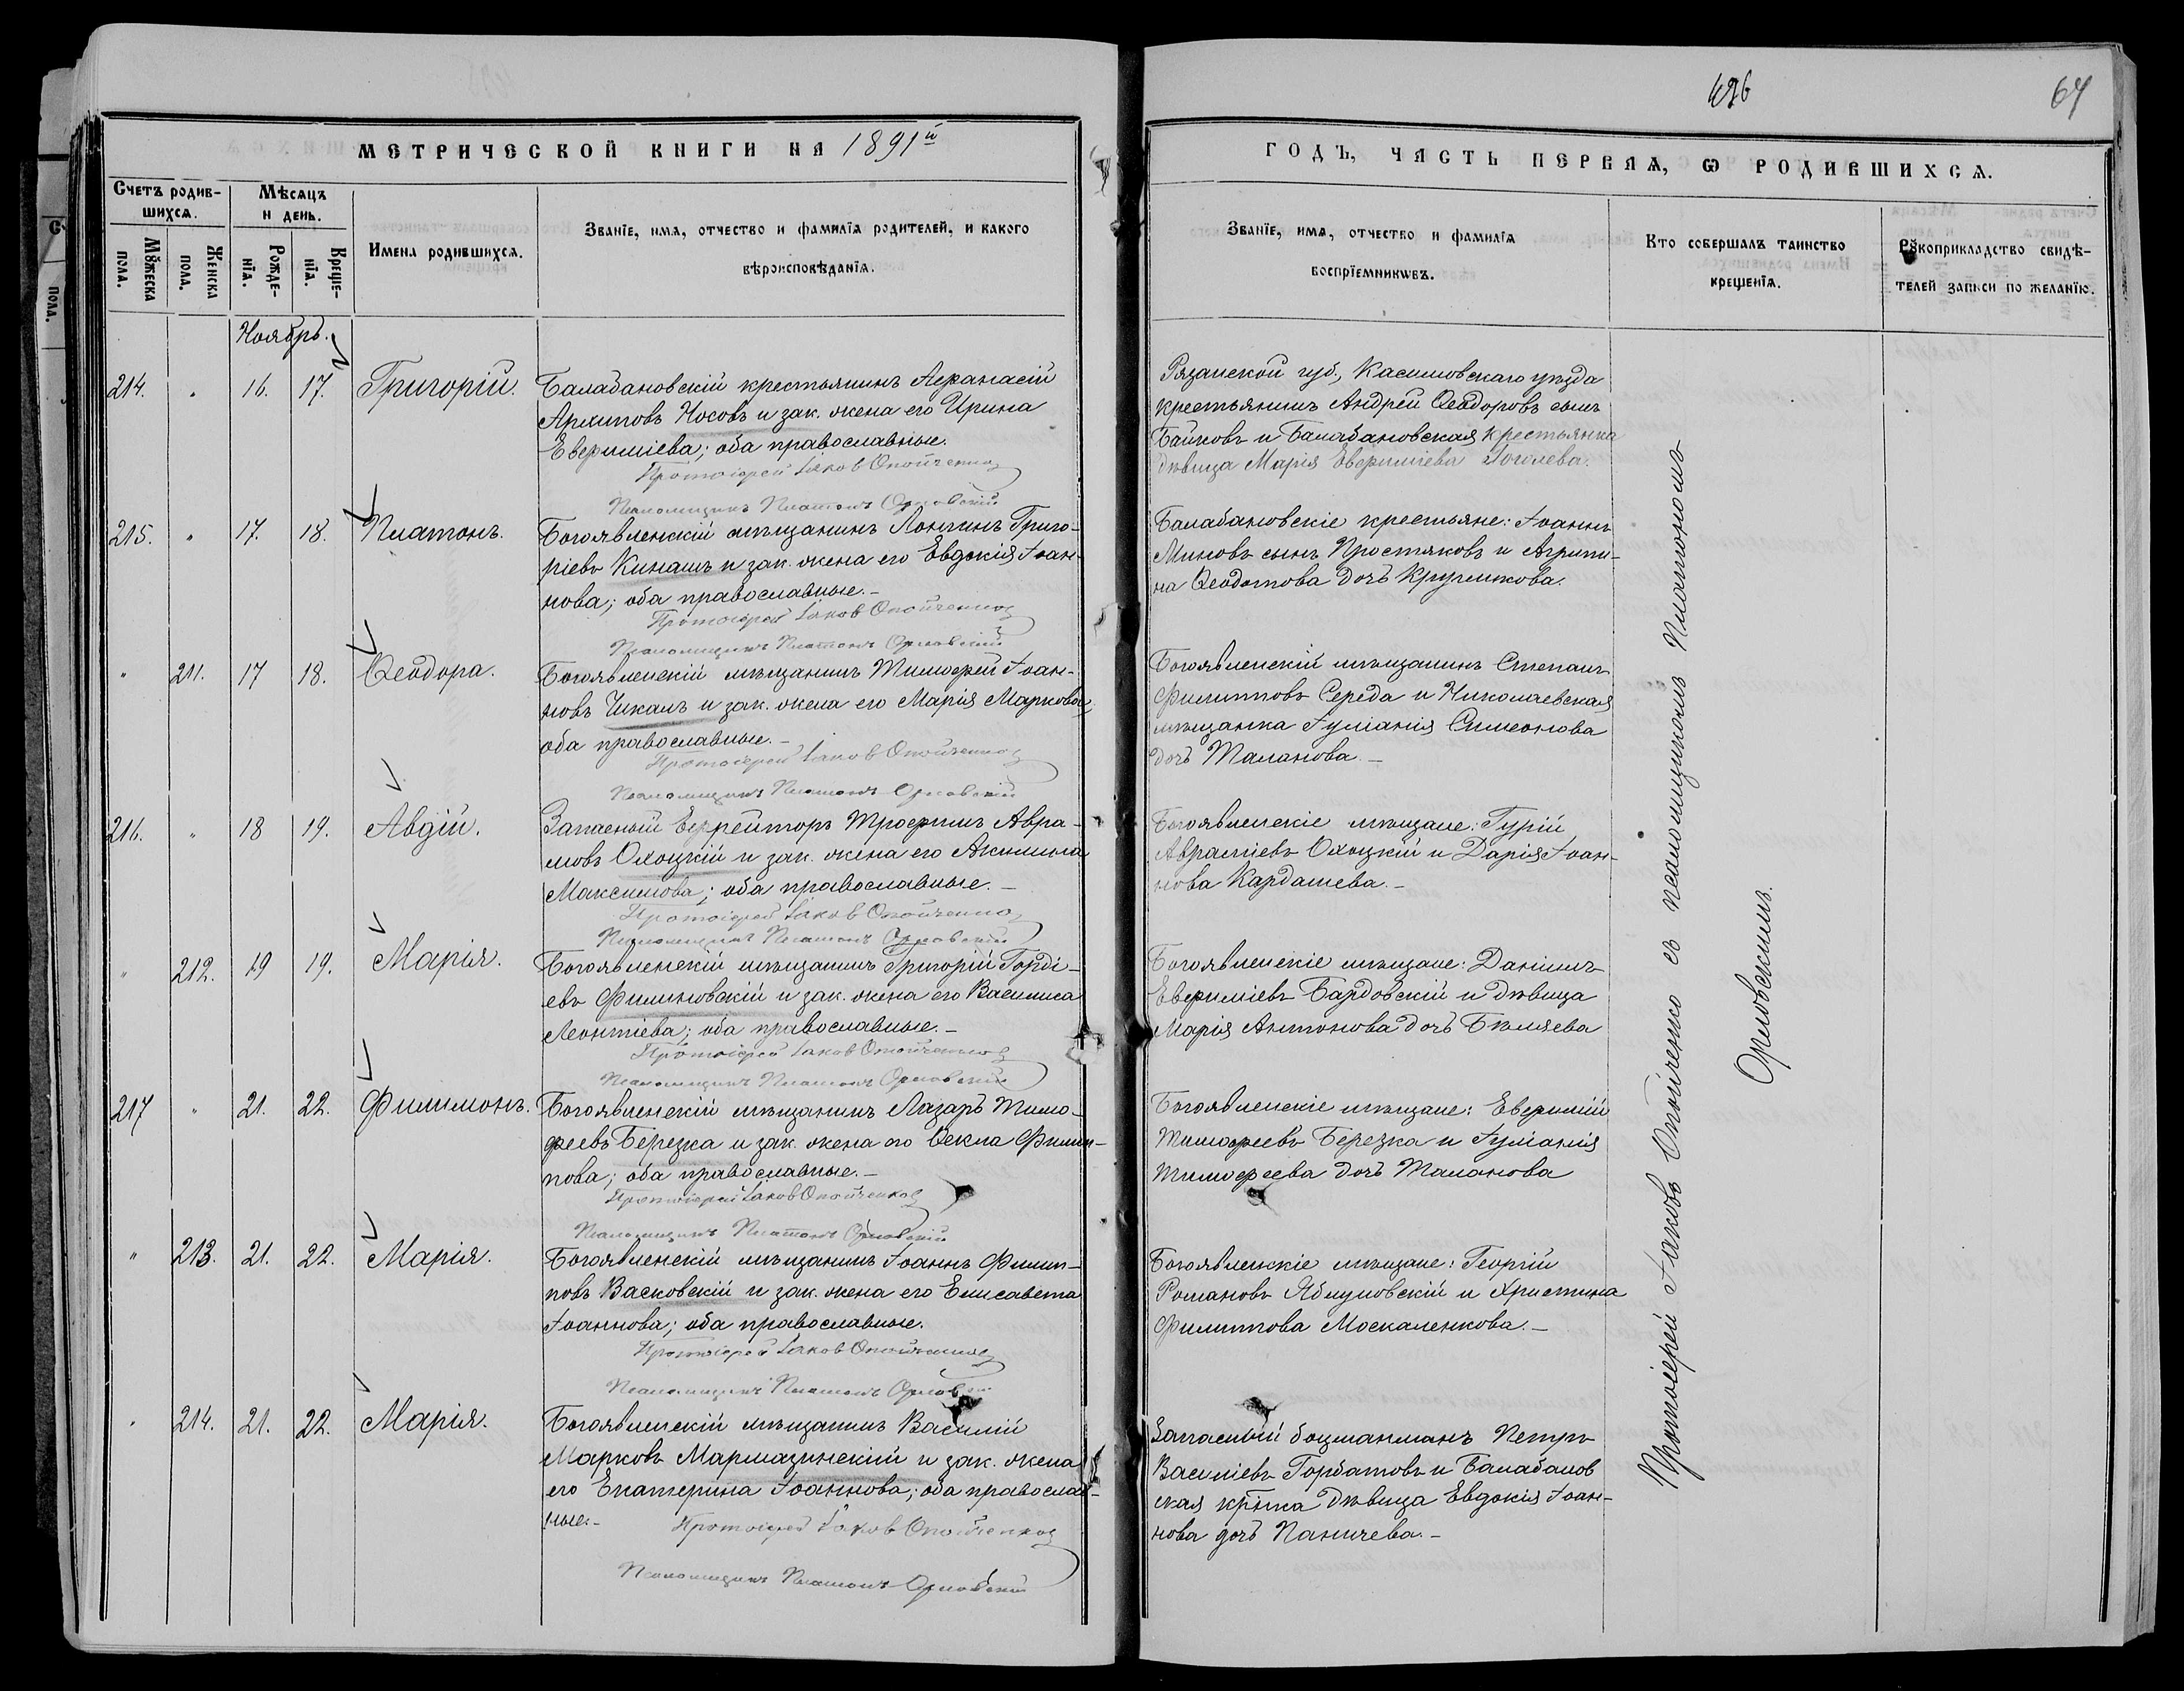 426
64
МЕТРИЧЕСКОЙ КНИГИ НА 1891й
ГОДЪ, ЧАСТЬ ПЕРВАЯ, Ѡ РОДИВШИХСѦ.
Счетъ родив-
шихсѧ.
Мѣсяцъ
и день.
Мꙋжеска
пола.
Женска
пола.
Рожде-
нїѧ.
Креще-
нїѧ.
Имена родившихсѧ.
Званїе, имѧ, отчество и фамилїѧ родителей, и какого
вѣроисповѣданїѧ.
Званїе, имѧ, отчество и фамилїѧ
воспрїемникѡвъ.
Кто совершалъ таинство
крещенїѧ.
Рꙋкоприкладство свидѣ-
телей записи по желанїю.
Ноябрь.
214. " 16. 17. Григорій.
Балабановскій крестьянинъ Афанасій
Архиповъ Носовъ и зак. жена его Ирина
Евфиміева; оба православные.
Протоіерей Іаковъ Опойченко
Псаломщикъ Платонъ Орловскій
Рязанской губ., Касимовскаго уѣзда
крестьянинъ Андрей Ѳеодоровъ сынъ
Байковъ и Балабановская крестьянка
дѣвица Марія Евфиміева Гоголева.
215. " 17. 18. Платонъ.
Богоявленскій мѣщанинъ Лонгинъ Григо-
ріевъ Кинашъ и зак. жена его Евдокія Іоан-
нова; оба православные.-
Протоіерей Іаковъ Опойченко
Псаломщикъ Платонъ Орловскій
Балабановскіе крестьяне: Іоаннъ
Миновъ сынъ Простяковъ и Агрипи-
на Ѳеодотова дочь Кругликова.
" 211. 17 18. Ѳеодора.
Богоявленскій мѣщанинъ Тимофей Іоан-
новъ Чикалъ и зак. жена его Марія Маркова;
оба православные.-
Протоіерей Іаковъ Опойченко
Псаломщикъ Платонъ Орловскій
Богоявленскій мѣщанинъ Степанъ
Филипповъ Середа и Николаевская
мѣщанка Іуліанія Симеонова
дочь Таланова.-
216. " 18 19. Авдій.
Запасный Ефрейторъ Трофимъ Авра-
мовъ Охоцкій и зак. жена его Акилина
Максимова; оба православные.-
Протоіерей Іаковъ Опойченко
Псаломщикъ Платонъ Орловскій
Богоявленскіе мѣщане: Гурій
Авраміевъ Охоцкій и Дарія Іоан-
нова Кардашева.-
" 212. 19 19. Марія.
Богоявленскій мѣщанинъ Григорій Горді-
евъ Филиновскій и зак. жена его Василиса
Леонтіева; оба православные.-
Протоіерей Іаковъ Опойченко
Псаломщикъ Платонъ Орловскій
Богоявленскіе мѣщане: Даніилъ
Евфиміевъ Бардовскій и дѣвица
Марія Антонова дочь Бѣляева
217 " 21. 22. Филимонъ.
Богоявленскій мѣщанинъ Лазарь Тимо-
феевъ Березка и зак. жена его Ѳекла Филип-
пова; оба православные.-
Протоіерей Іаковъ Опойченко
Псаломщикъ Платонъ Орловскій
Богоявленскіе мѣщане: Евфимій
Тимофеевъ Березка и Іуліанія
Тимофеева дочь Таланова
" 213. 21. 22. Марія.
Богоявленскій мѣщанинъ Іоаннъ Филип-
повъ Васковскій и зак. жена его Елисавета
Іоаннова; оба православные.
Протоіерей Іаковъ Опойченко
Псаломщикъ Платонъ Орловскій
Богоявленскіе мѣщане: Георгій
Романовъ Яблуновскій и Христина
Филиппова Москаленкова.-
" 214. 21. 22. Марія.
Богоявленскій мѣщанинъ Василій
Марковъ Мармазинскій и зак. жена
его Екатерина Іоаннова; оба православ-
ные.-
Протоіерей Іаковъ Опойченко
Псаломщикъ Платонъ Орловскій
Запасный боцманманъ Петръ
Василіевъ Горбатовъ и Балабанов
ская кр̃нка дѣвица Евдокія Іоан-
нова дочь Паничева.-
Протоіерей Іаковъ Опойченко съ псаломщикомъ Платономъ
Орловскимъ.